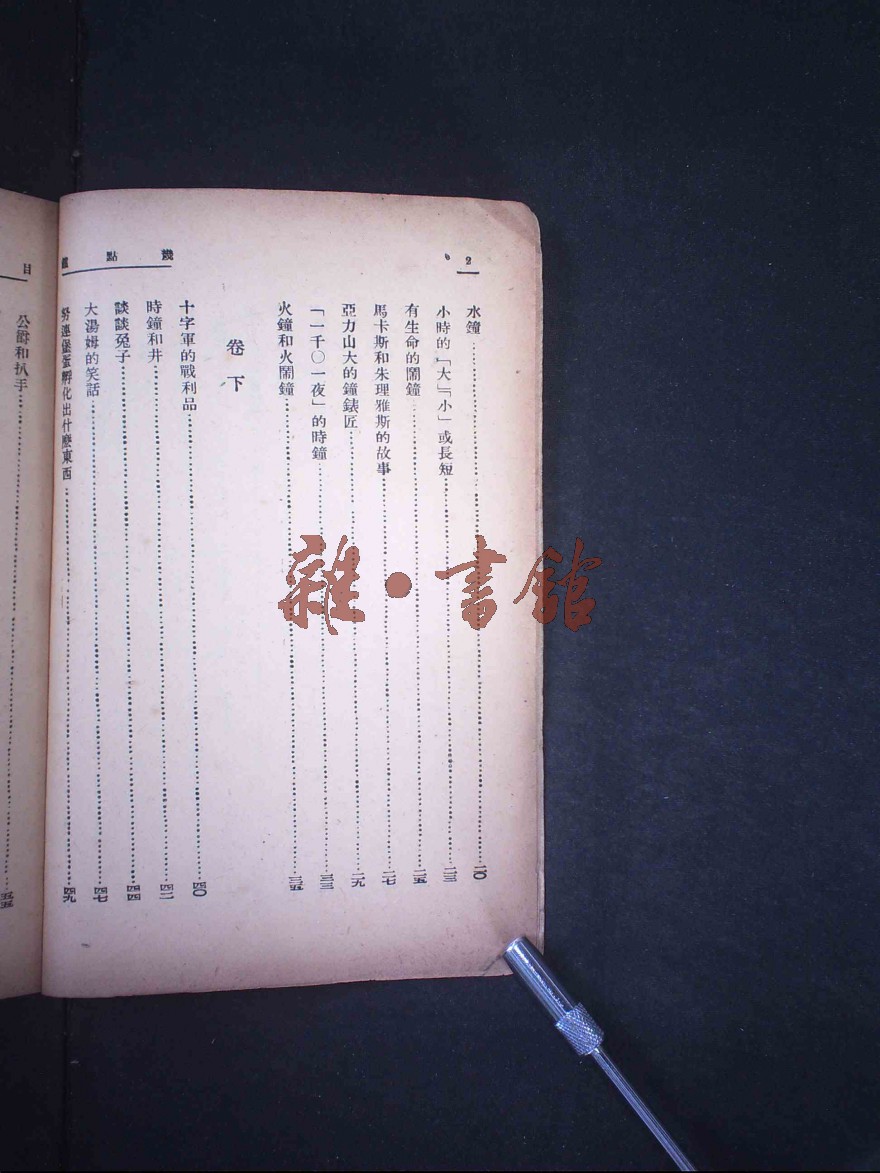 2
幾點鐘
水鐘 二〇
小時的「大」「小」或長短 二三
有生命的鬧鐘 二五
馬卡斯和朱理雅斯的故事 二七
亞力山大的鐘錶匠 二九
「一千〇一夜」的時鐘 三三
火鐘和火鬧鐘 三五
卷下
十字軍的戰利品 四〇
時鐘和井 四二
談談兔子 四四
大湯姆的笑話 四七
努連堡蛋孵化出什麼東西 四九
目
公爵和扒手 五五
雜·書館